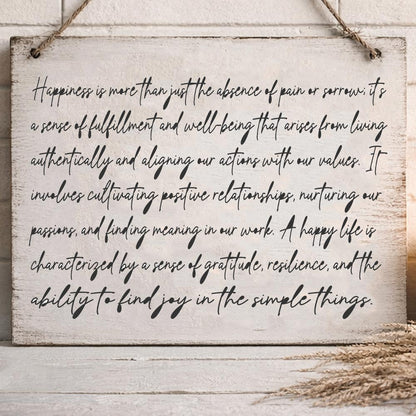 Happiness is more than just the absence of pain or sorrow; it's
a sense of fulfillment and well-being that arises from living
authentically and aligning our actions with our values. It
involves cultivating positive relationships, nurturing our
passions, and finding meaning in our work. A happy life is
characterized by a sense of gratitude, resilience, and the
ability to find joy in the simple things.